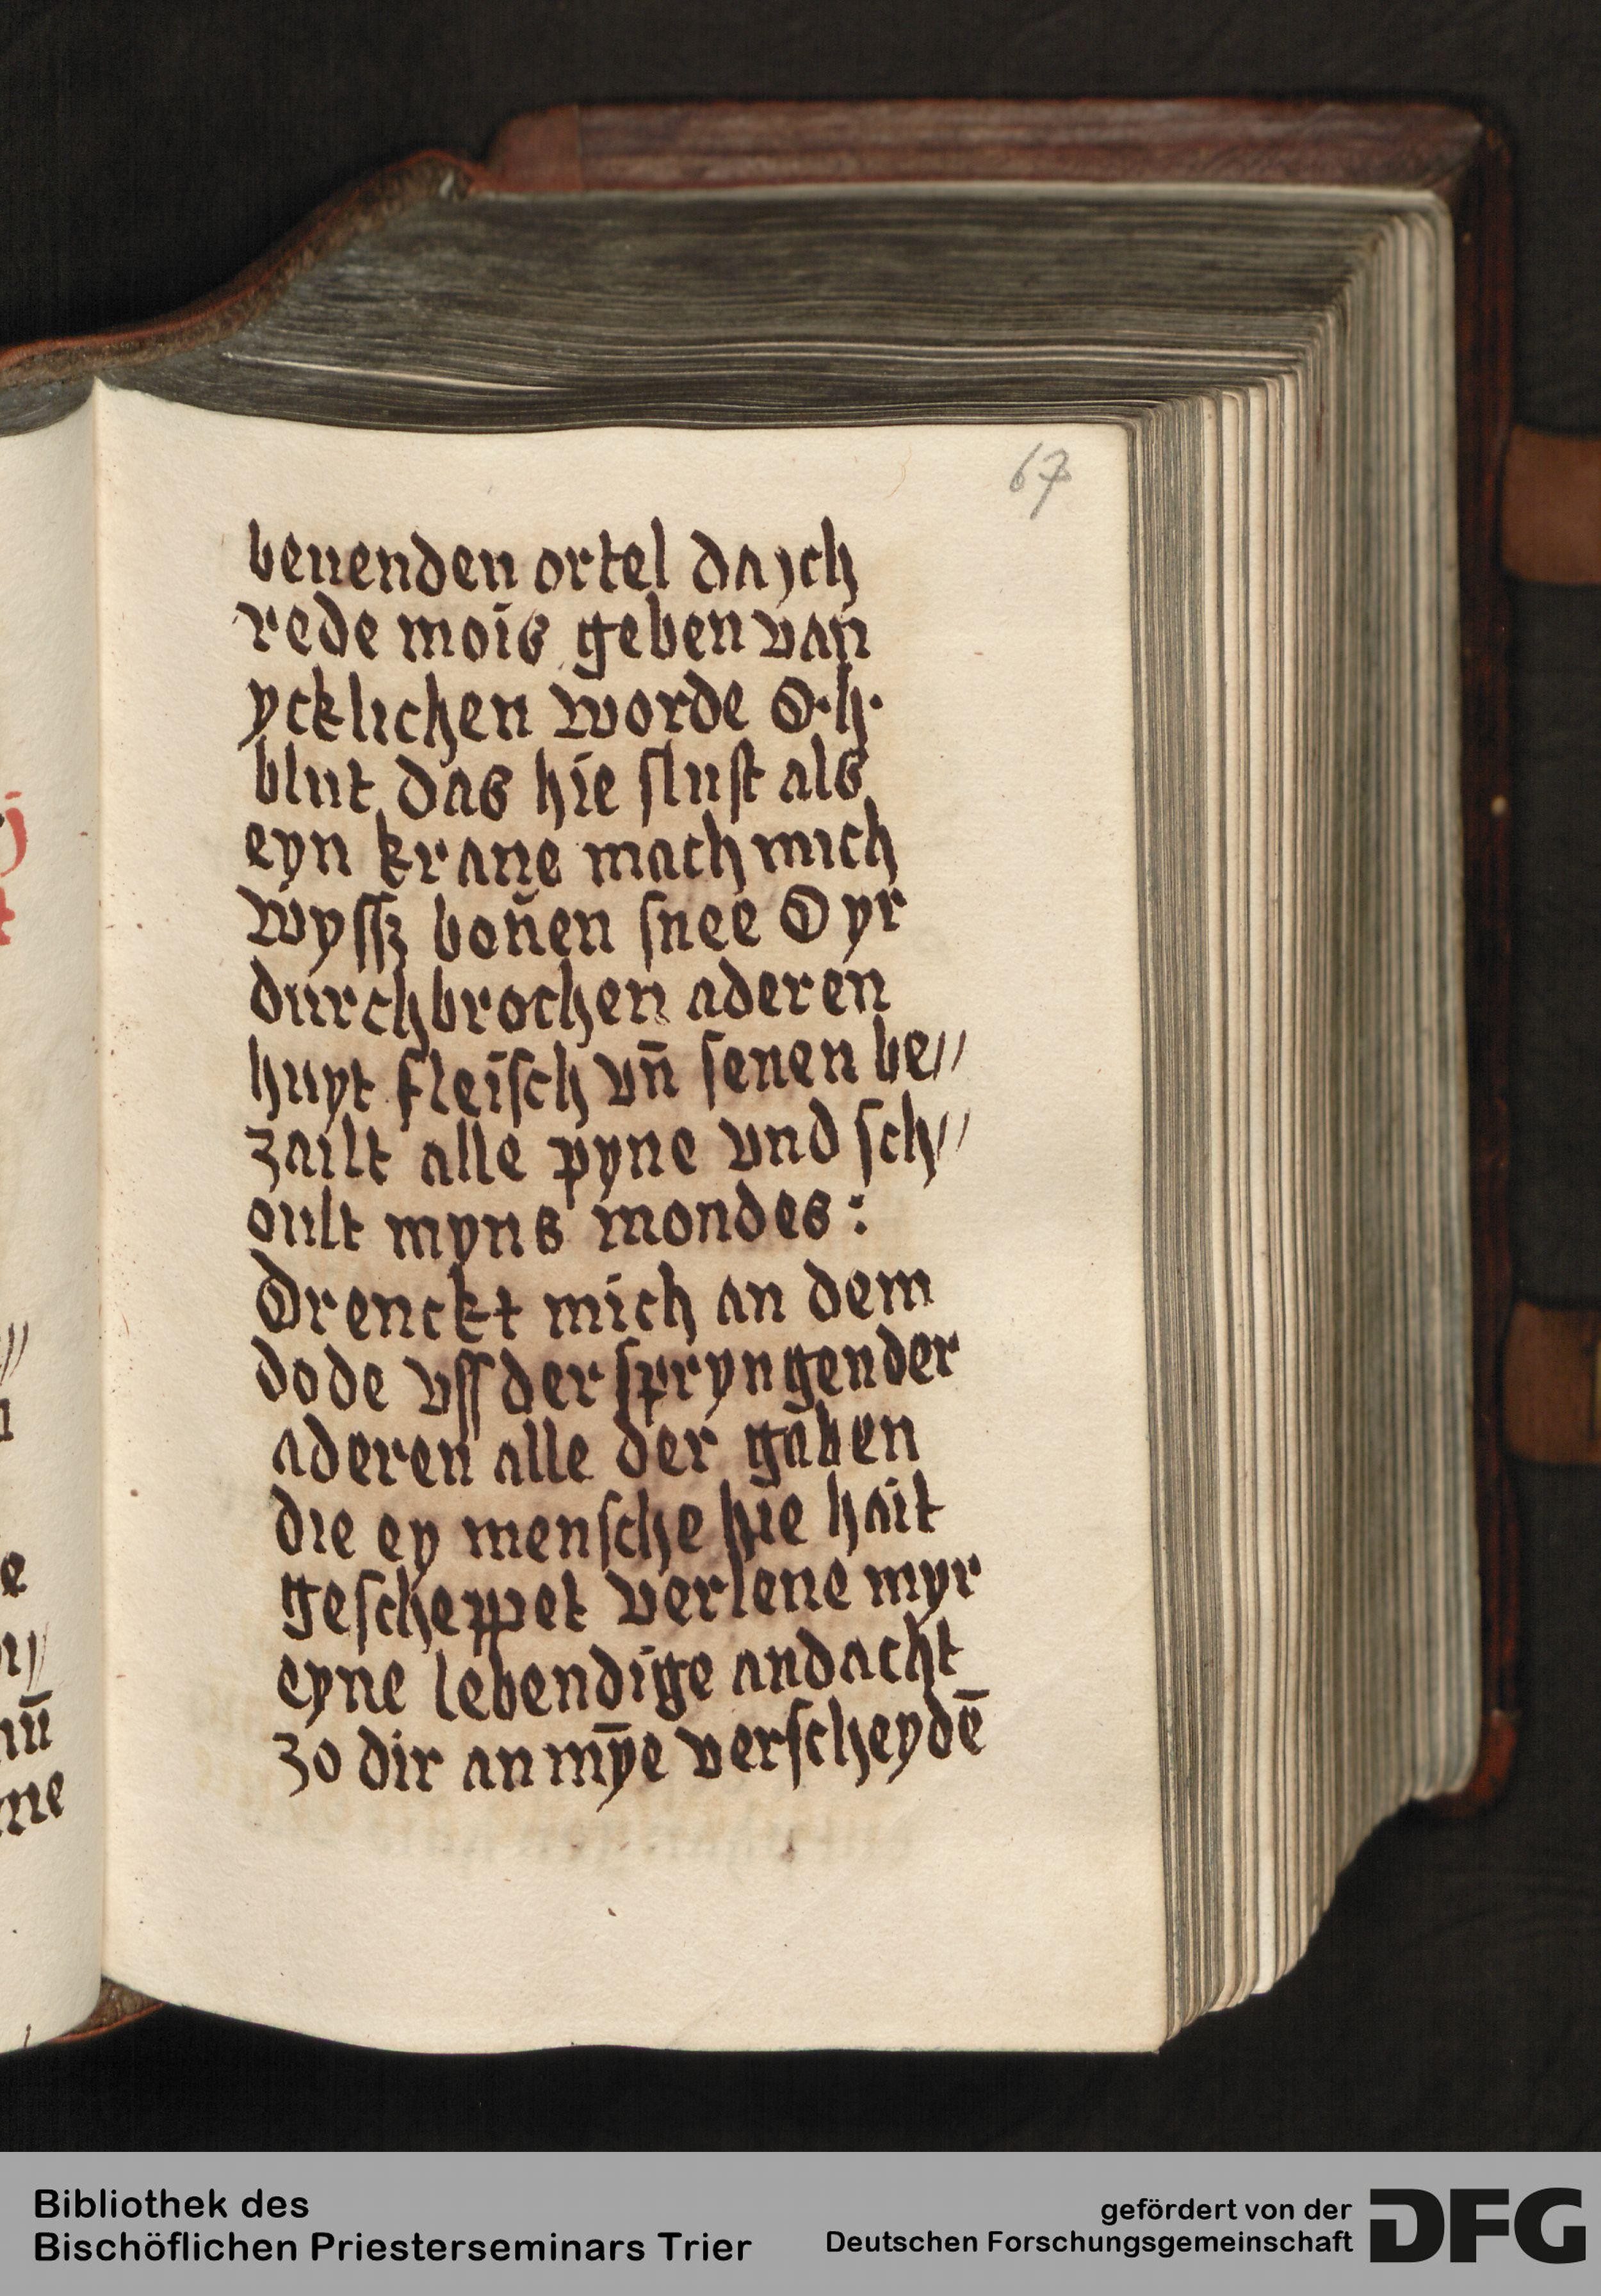 67
beuenden ortel da ych
rede mois geben van
ycklichen worde O·h·
blut das hie flust als
eyn krane mach mich
wyssz boñen snee O yr
durchbrochen aderen
huyt fleisch vn̄ senen be〃
zailt alle pyne vnd sch〃
oult myns mondes :
Drenckt mich an dem
dode vss der spryngender
aderen alle der gaben
die ey mensche hie hait
gescheppet verlene myr
eyne lebendige andacht
zo dir an mȳe verscheydē
Bibliothek des
Bischöflichen Priesterseminars Trier
gefördert von der
Deutschen Forschungsgemeinschaft
DFG